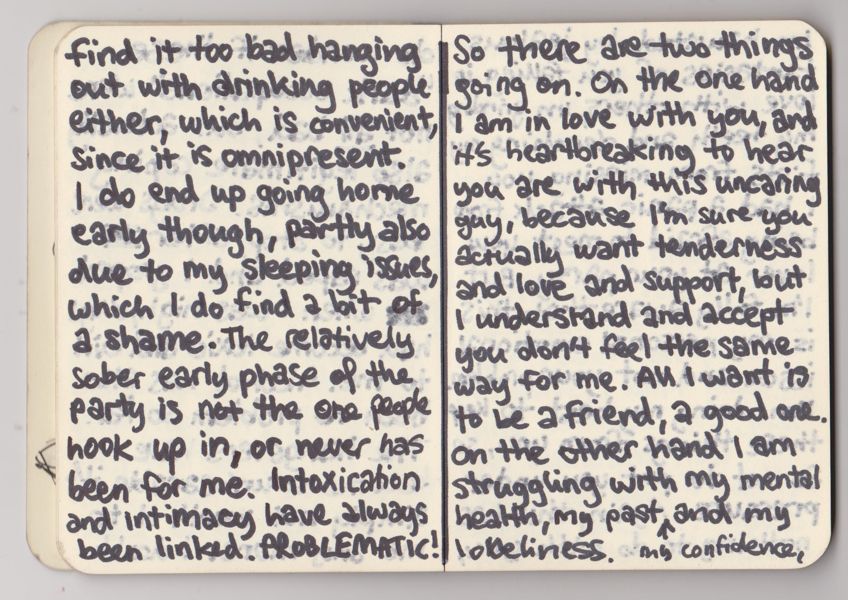 find it too bad hanging
out with drinking people
either, which is convenient,
since it is omnipresent.
I do end up going home
early though, partly also
due to my sleeping issues,
which I do find a bit of
a shame. The relatively
sober early phase of the
party is not the one people
hook up in, or never has
been for me. Intoxication
and intimacy have always
been linked. PROBLEMATIC!
So there are two things
going on. On the one hand
I am in love with you, and
it's heartbreaking to hear
you are with this uncaring
guy, because I'm sure you
actually want tenderness
and love and support, but
I understand and accept
you don't feel the same
way for me. All I want is
to be a friend, a good one.
On the other hand I am
struggling with my mental
health, my past, and my
loneliness. my confidence,